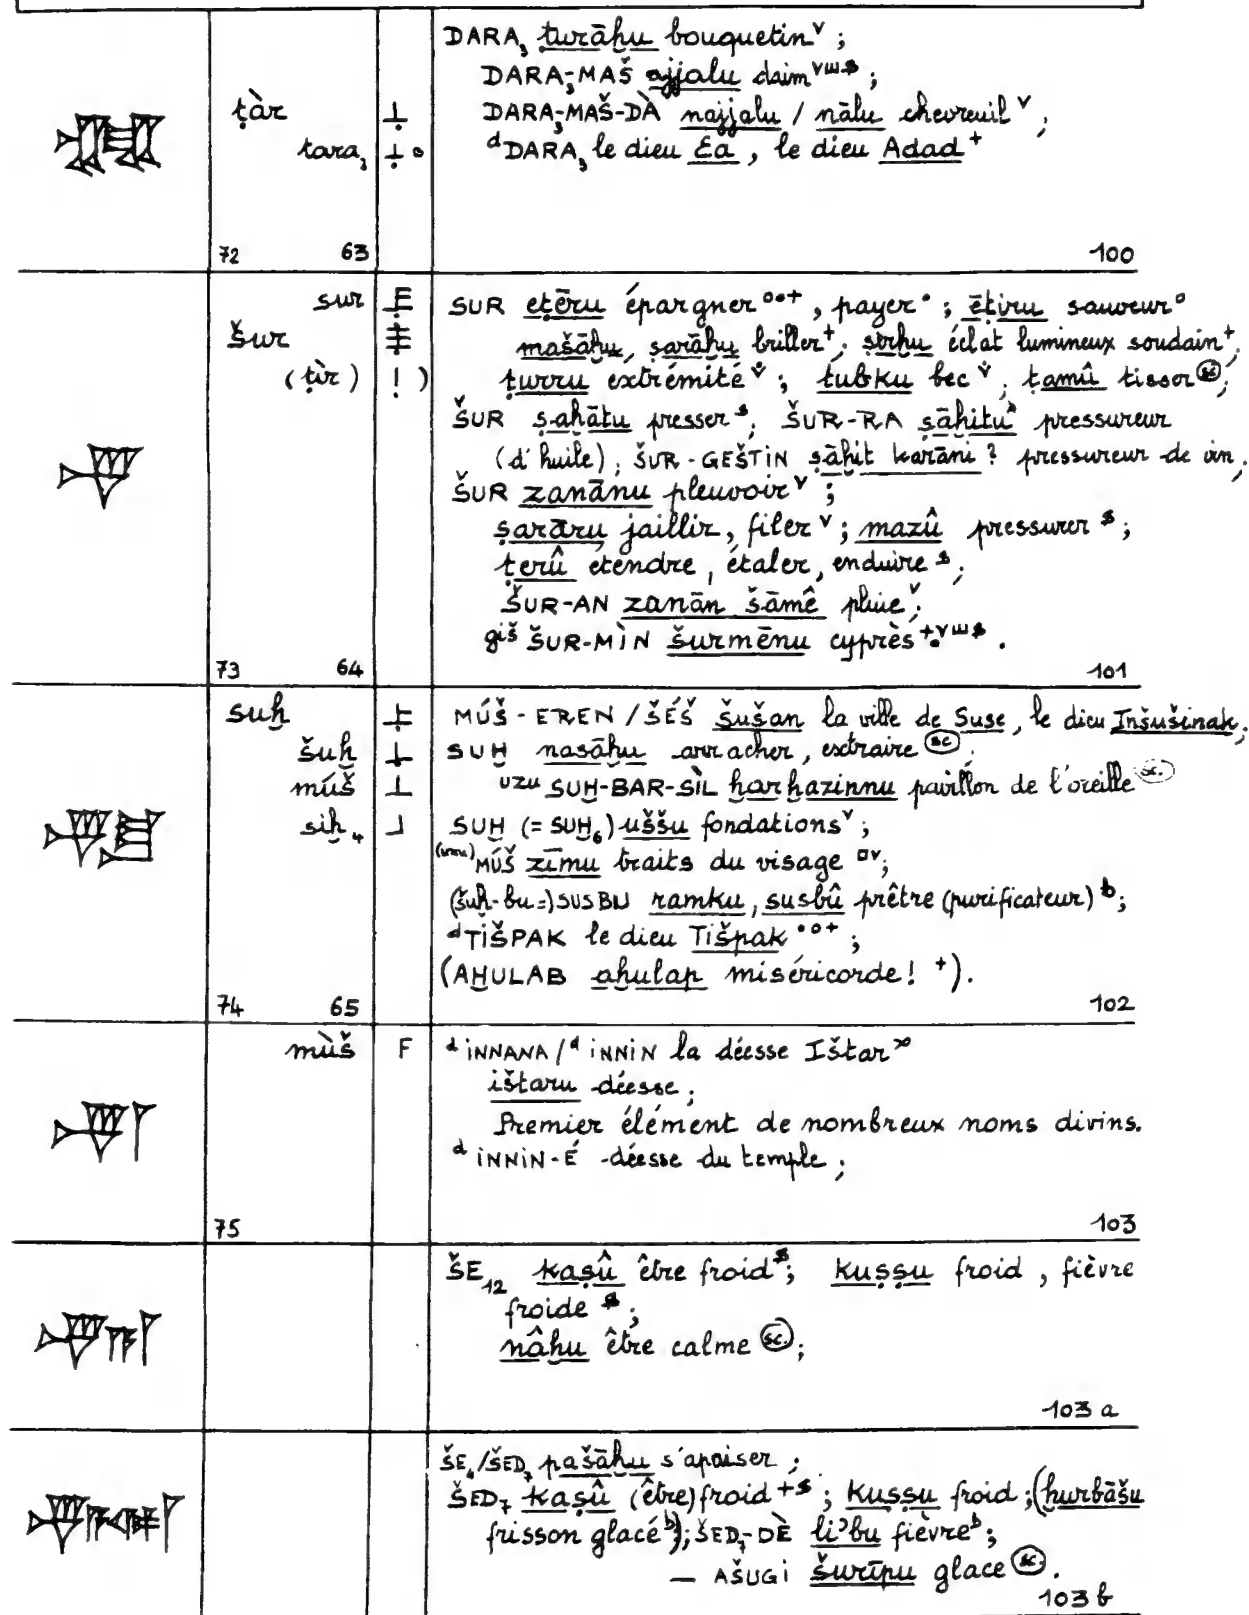 DARA₃ turāḫu bouquetin ᵛ ;
DARA₃-MAŠ ajjalu daim ;
ṭàr DARA₃-MAŠ-DÀ najjalu / nālu chevreuil ᵛ ;
tara₃ ᵈDARA₃ le dieu Ea, le dieu Adad ⁺
72 63 100
sur SUR eṭēru épargner °°⁺, payer ° ; ēṭiru sauveur °
šur mašāḫu, ṣarāḫu briller ⁺, ṣirḫu éclat lumineux soudain ⁺,
(ṭìr) ! ) ṭurru extrémité ; tubku bec ; ṭamû tisser (sc) ;
ŠUR ṣaḫātu presser ˢ, ŠUR-RA ṣāḫitu pressureur
(d'huile), ŠUR-GEŠTIN ṣāḫit karāni ? pressureur de vin,
ŠUR zanānu pleuvoir ᵛ ;
ṣarāru jaillir, filer ᵛ ; mazû pressurer ˢ ;
ṭerû étendre, étaler, enduire ˢ ;
ŠUR-AN zanān šāmê pluie ᵛ ;
giš ŠUR-MÌN šurmēnu cyprès .
73 64 101
suḫ MÚŠ-EREN / ŠÉŠ Šušan la ville de Suse, le dieu Inšušinak ;
šuḫ SUḪ nasāḫu arracher, extraire (sc) ;
múš uzu SUḪ-BAR-SÌL ḫarḫazinnu pavillon de l'oreille (sc.)
siḫ₄ SUḪ (= SUḪ₆) uššu fondations ᵛ ;
(uzu) MÚŠ zīmu traits du visage ᵛ ;
(šuḫ-bu =) SUSBU ramku, susbû prêtre (purificateur) ᵇ ;
ᵈTIŠPAK le dieu Tišpak •°⁺ ;
(AḪULAB aḫulap miséricorde ! ⁺).
74 65 102
mùš F ᵈINNANA / ᵈINNIN la déesse Ištar
ištaru déesse ;
Premier élément de nombreux noms divins.
ᵈINNIN-É déesse du temple ;
75 103
ŠE₁₂ kaṣû être froid ˢ ; kuṣṣu froid, fièvre
froide ˢ ;
nâḫu être calme (sc.) ;
103 a
ŠE₄/ŠED₇ pašāḫu s'apaiser ;
ŠED₇ kaṣû (être) froid ⁺ˢ ; kuṣṣu froid ; (ḫurbāšu
frisson glacé ᵇ) ; ŠED₇-DÈ li'bu fièvre ᵇ ;
— AŠUGI šurīpu glace (sc.) .
103 b